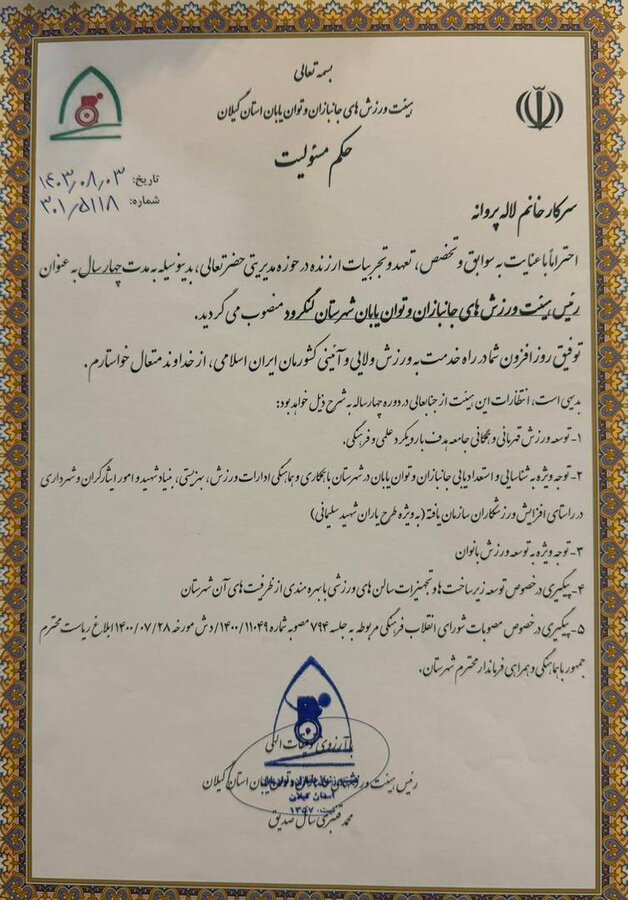 بسمه تعالی
هیئت ورزش های جانبازان و توان یابان استان گیلان
حکم مسئولیت
تاریخ: ۱۴۰۳٫۰۸٫۰۳
شماره: ۳۰۱٫۵۱۱۸
سرکار خانم لاله پروانه
احتراماً با عنایت به سوابق و تخصص، تعهد و تجربیات ارزنده در حوزه مدیریتی حضرتعالی، بدینوسیله به مدت چهار سال به عنوان
رئیس هیئت ورزش های جانبازان و توان یابان شهرستان لنگرود منصوب می گردید.
توفیق روز افزون شما در راه خدمت به ورزش ولایی و آئینی کشورمان ایران اسلامی، از خداوند متعال خواستارم.
بدیهی است، انتظارات این هیئت از جنابعالی در دوره چهارساله به شرح ذیل خواهد بود:
۱- توسعه ورزش قهرمانی و همگانی جامعه هدف با رویکرد علمی و فرهنگی.
۲- توجه ویژه به شناسایی و استعدادیابی جانبازان و توان یابان در شهرستان با همکاری و هماهنگی ادارات ورزش، بهزیستی، بنیاد شهید و امور ایثارگران و شهرداری
در راستای افزایش ورزشکاران سازمان یافته (به ویژه طرح یاران شهید سلیمانی)
۳- توجه ویژه به توسعه ورزش بانوان
۴- پیگیری در خصوص توسعه زیرساخت ها و تجهیزات سالن های ورزشی با بهره مندی از ظرفیت های آن شهرستان
۵- پیگیری در خصوص مصوبات شورای انقلاب فرهنگی مربوطه به جلسه ۷۹۴ مصوبه شماره ۱۴۰۰/۱۱۰۴۹/دش مورخه ۱۴۰۰/۰۷/۲۸ ابلاغ ریاست محترم
جمهور با هماهنگی و همراهی فرماندار محترم شهرستان.
با آرزوی توفیقات الهی
رئیس هیئت ورزش های جانبازان و توان یابان استان گیلان
استان گیلان
ثبت: ۱۳۵۷
محمد قنبری سال صدیق